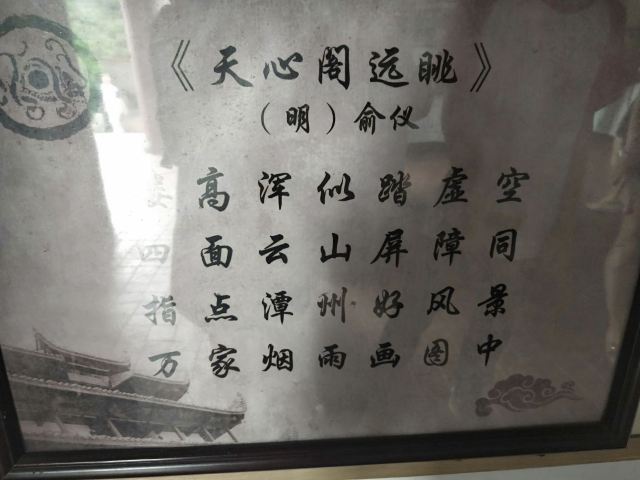 《天心阁远眺》
（明）俞仪
高浑似踏虚空
四面云山屏障同
指点潭州好风景
万家烟雨画图中